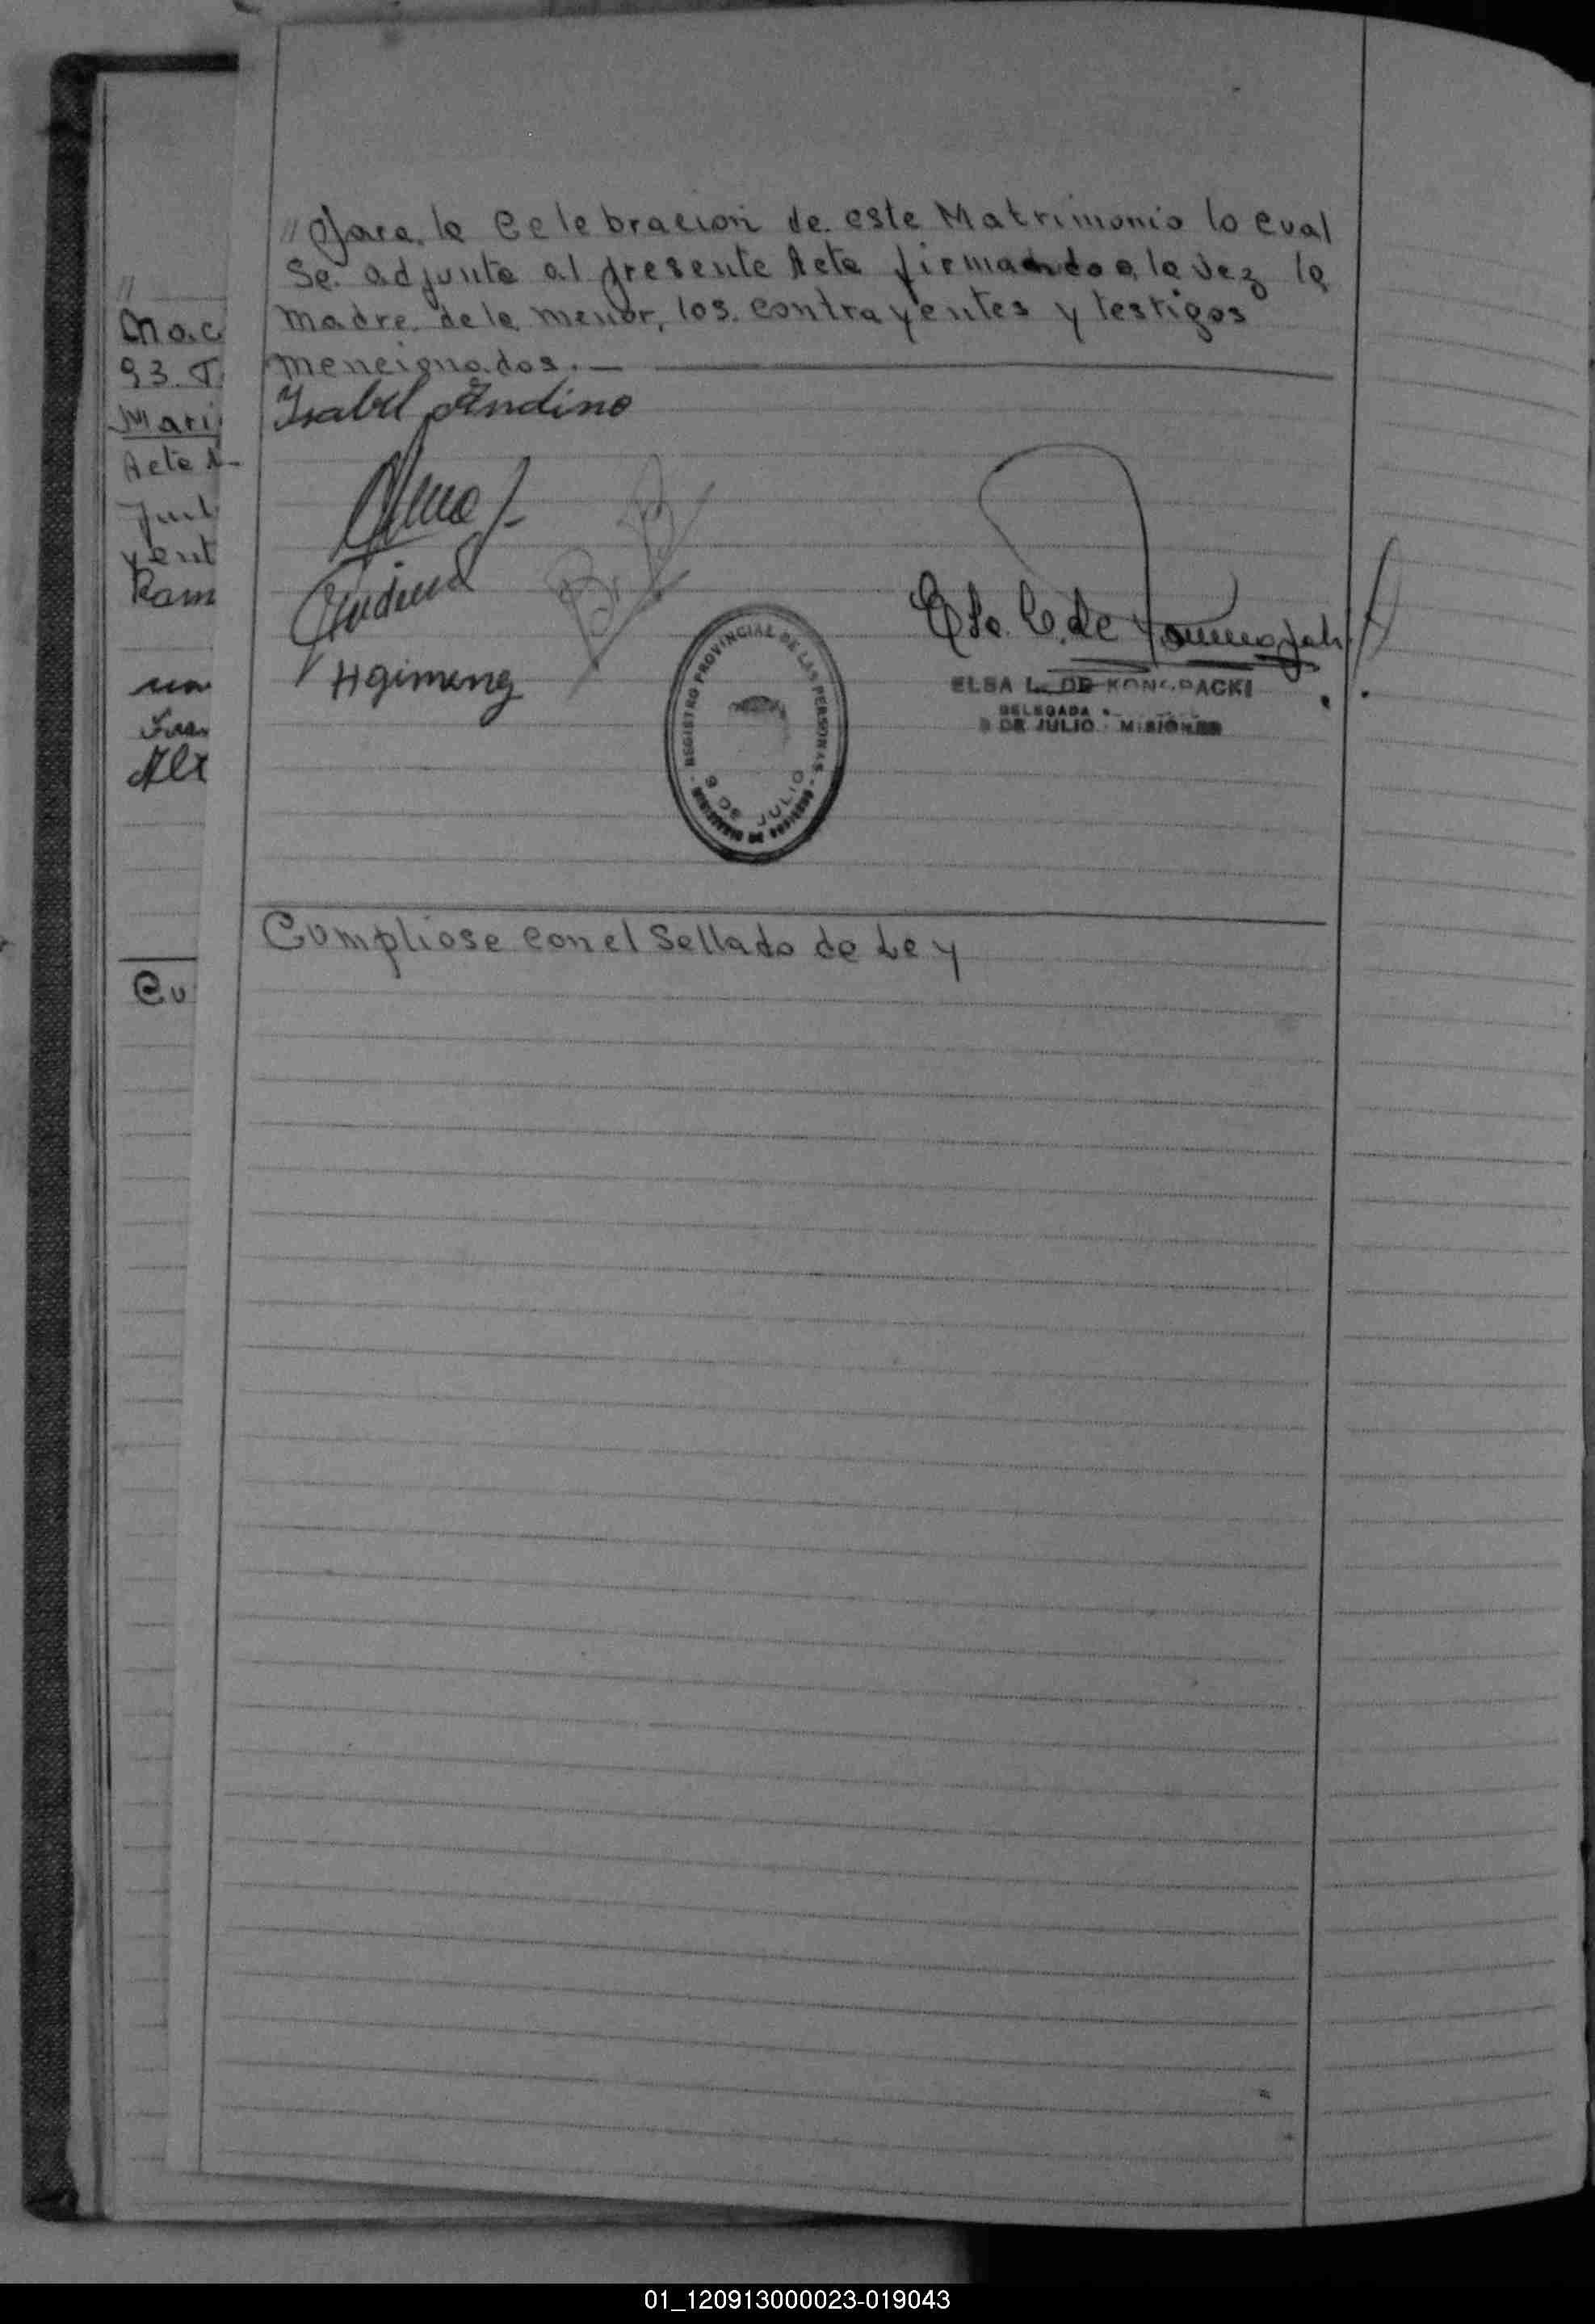 // Para la Celebracion de este Matrimonio lo cual
Se adjunta al presente Acta firmando a la vez la
madre de la menor, los contrayentes y testigos
mencionados. —
Isabel Andino
H Gimenez
REGISTRO PROVINCIAL DE LAS PERSONAS
9 DE JULIO
Elsa L. de
ELSA L. DE KONOPACKI
DELEGADA
9 DE JULIO - MISIONES
Cumpliose con el Sellado de Ley
//
Nac
93. T
Mari
Acta
yent
Ram
Cu
01_120913000023-019043